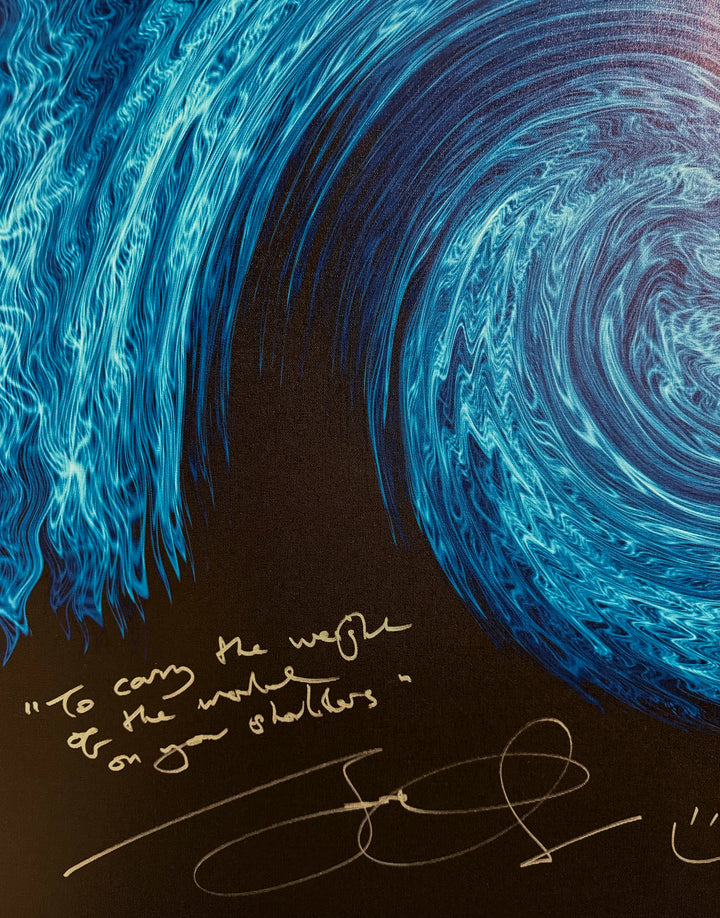 "To carry the weight
of the world
on your shoulders"